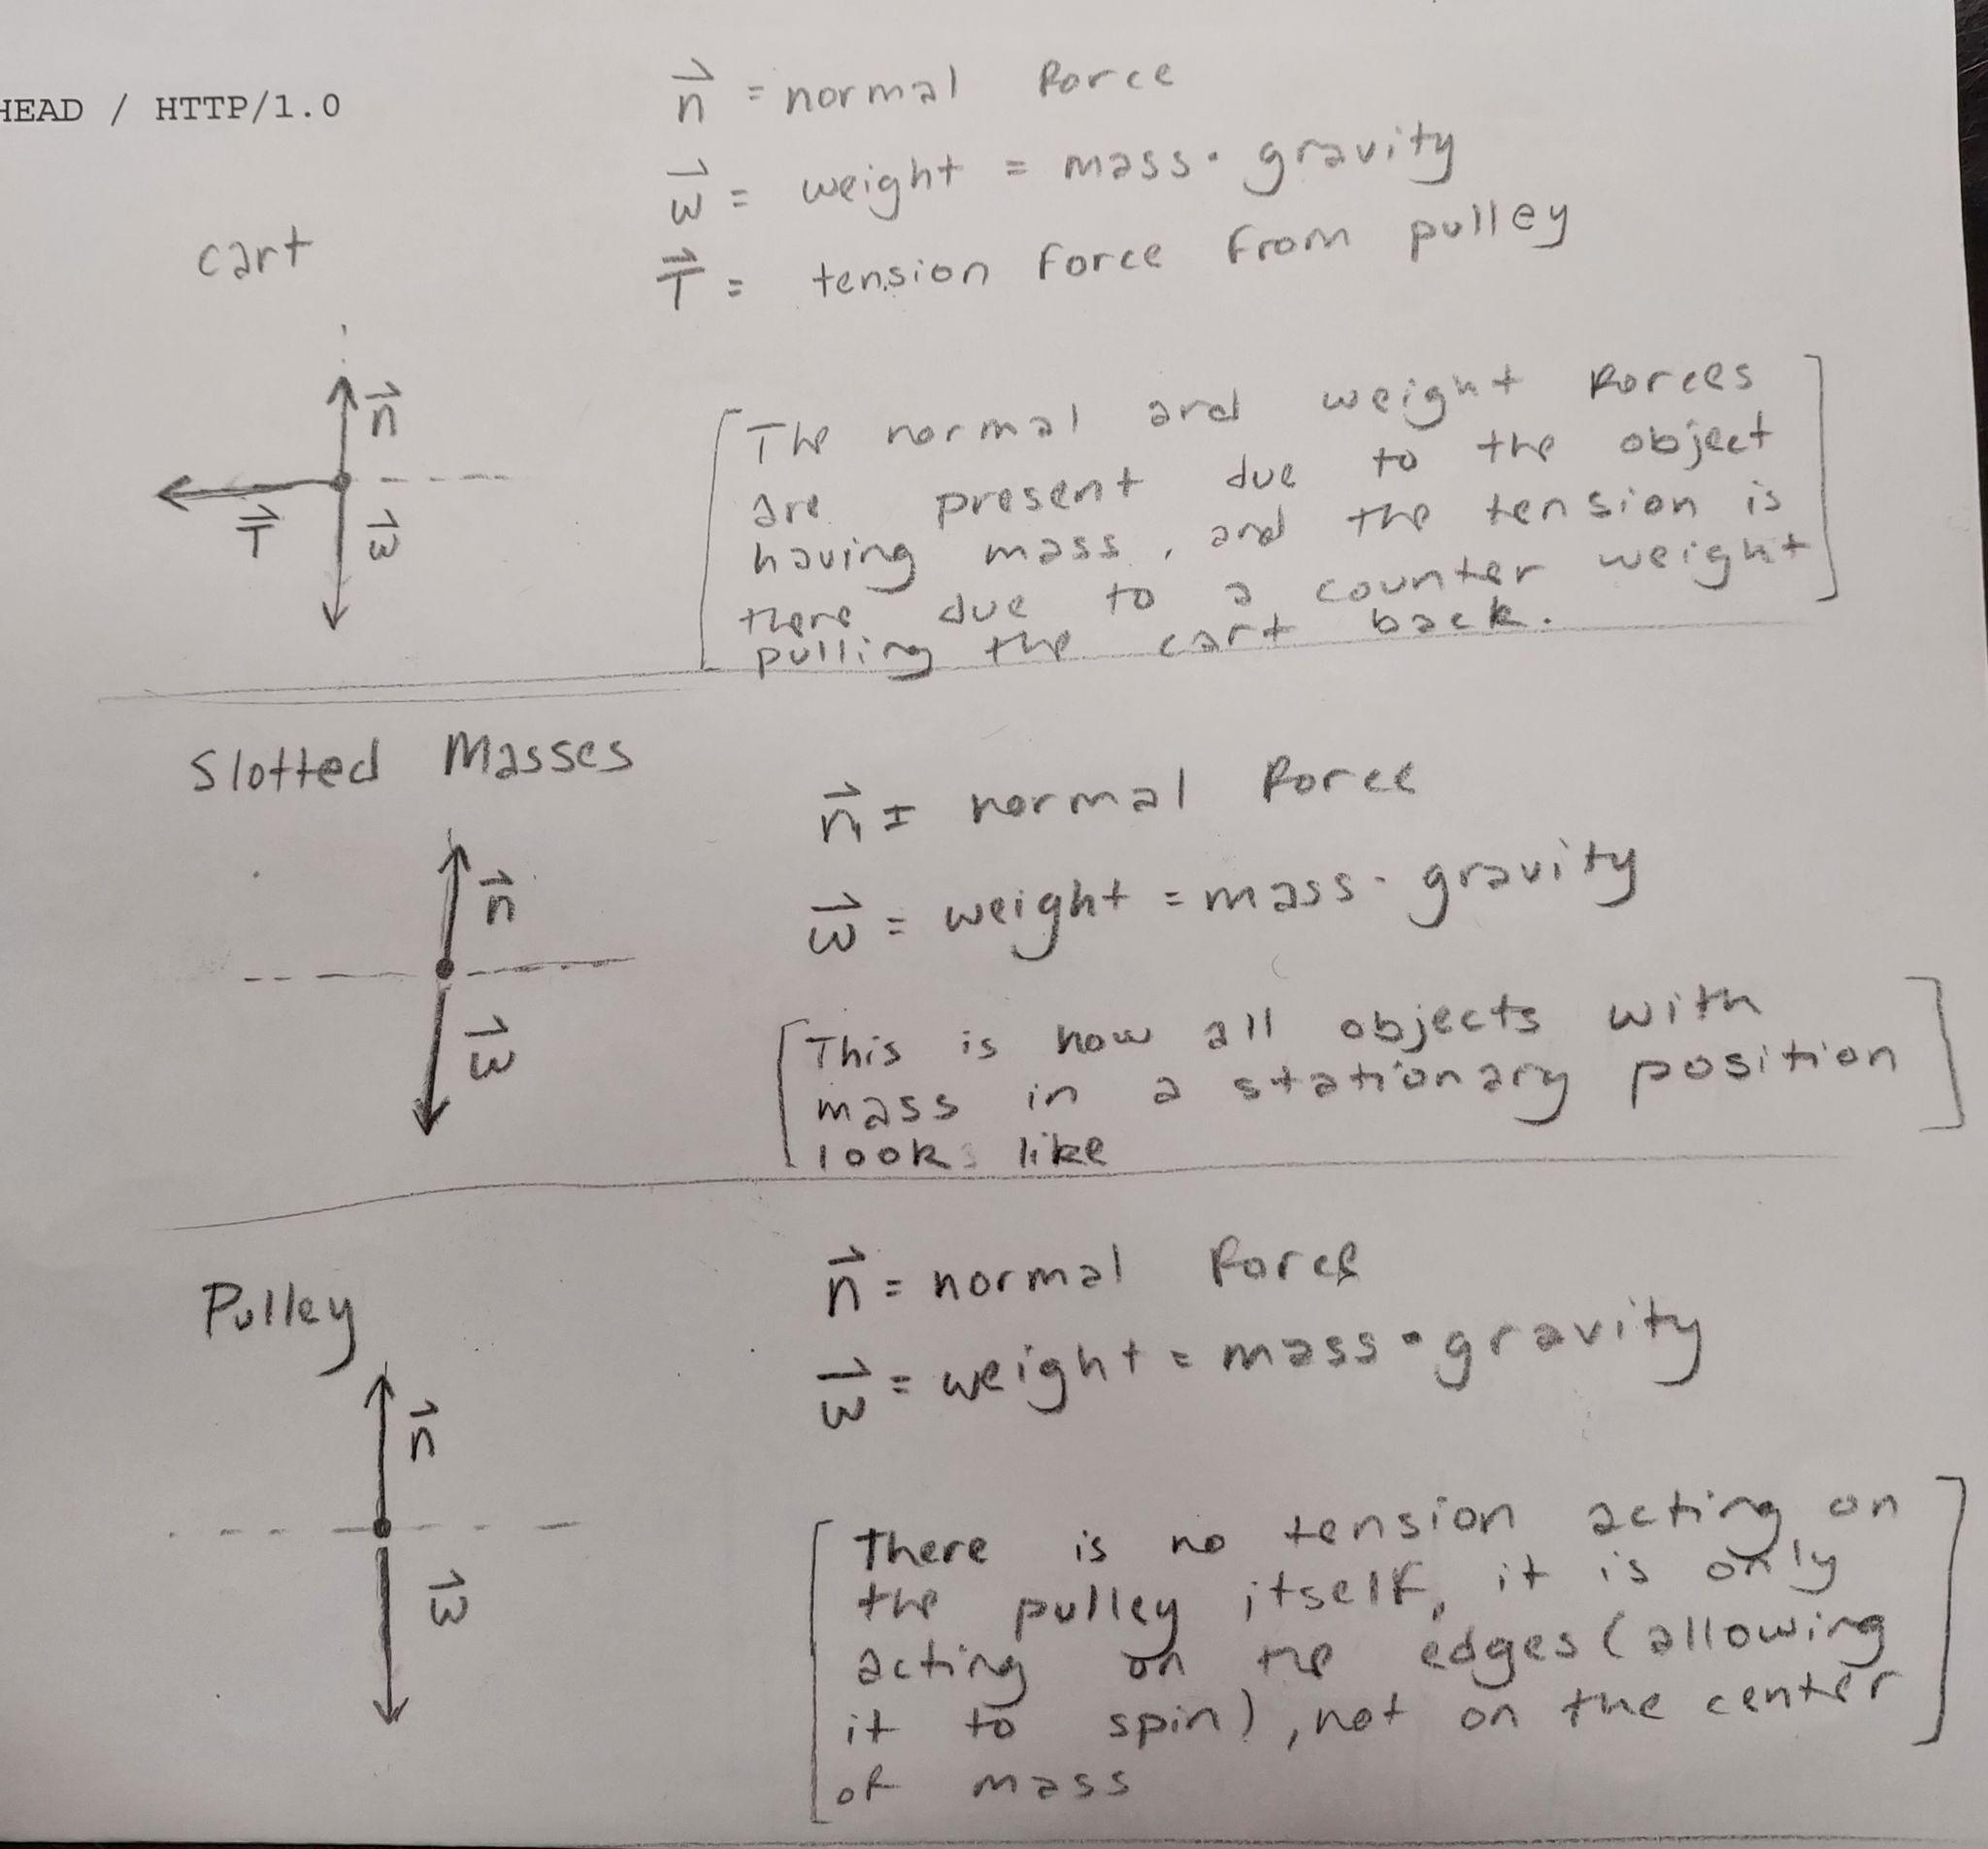 HEAD / HTTP/1.0
n⃗ = normal force
w⃗ = weight = mass · gravity
T⃗ = tension force from pulley
cart
n⃗
T⃗
w⃗
The normal and weight forces
are present due to the object
having mass, and the tension is
there due to a counter weight
pulling the cart back.
Slotted Masses
n⃗ = normal force
w⃗ = weight = mass · gravity
n⃗
w⃗
This is how all objects with
mass in a stationary position
looks like
Pulley
n⃗ = normal force
w⃗ = weight = mass · gravity
n⃗
w⃗
There is no tension acting on
the pulley itself, it is only
acting on the edges (allowing
it to spin), not on the center
of mass